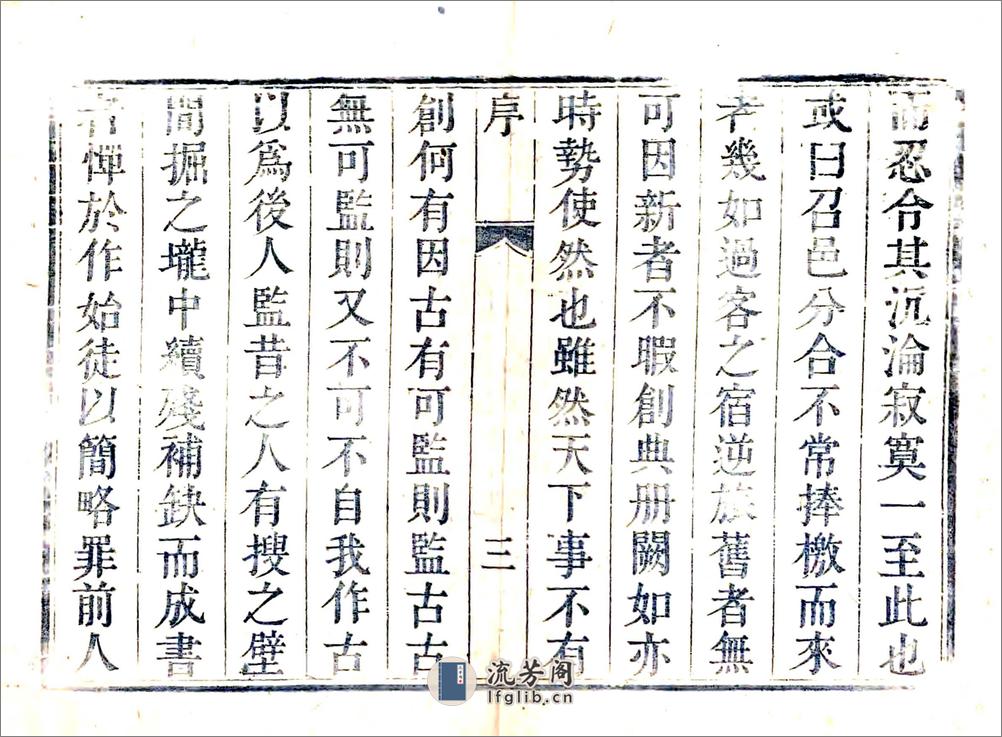 而忍令其沉淪寂寞一至此也
或曰召邑分合不常捧檄而來
者幾如過客之宿逆旅舊者無
可因新者不暇創典册闕如亦
時勢使然也雖然天下事不有
序 三
創何有因古有可監則監古古
無可監則又不可不自我作古
以爲後人監昔之人有搜之壁
間掘之壠中續殘補缺而成書
者憚於作始徒以簡略罪前人
流芳阁
lfglib.cn